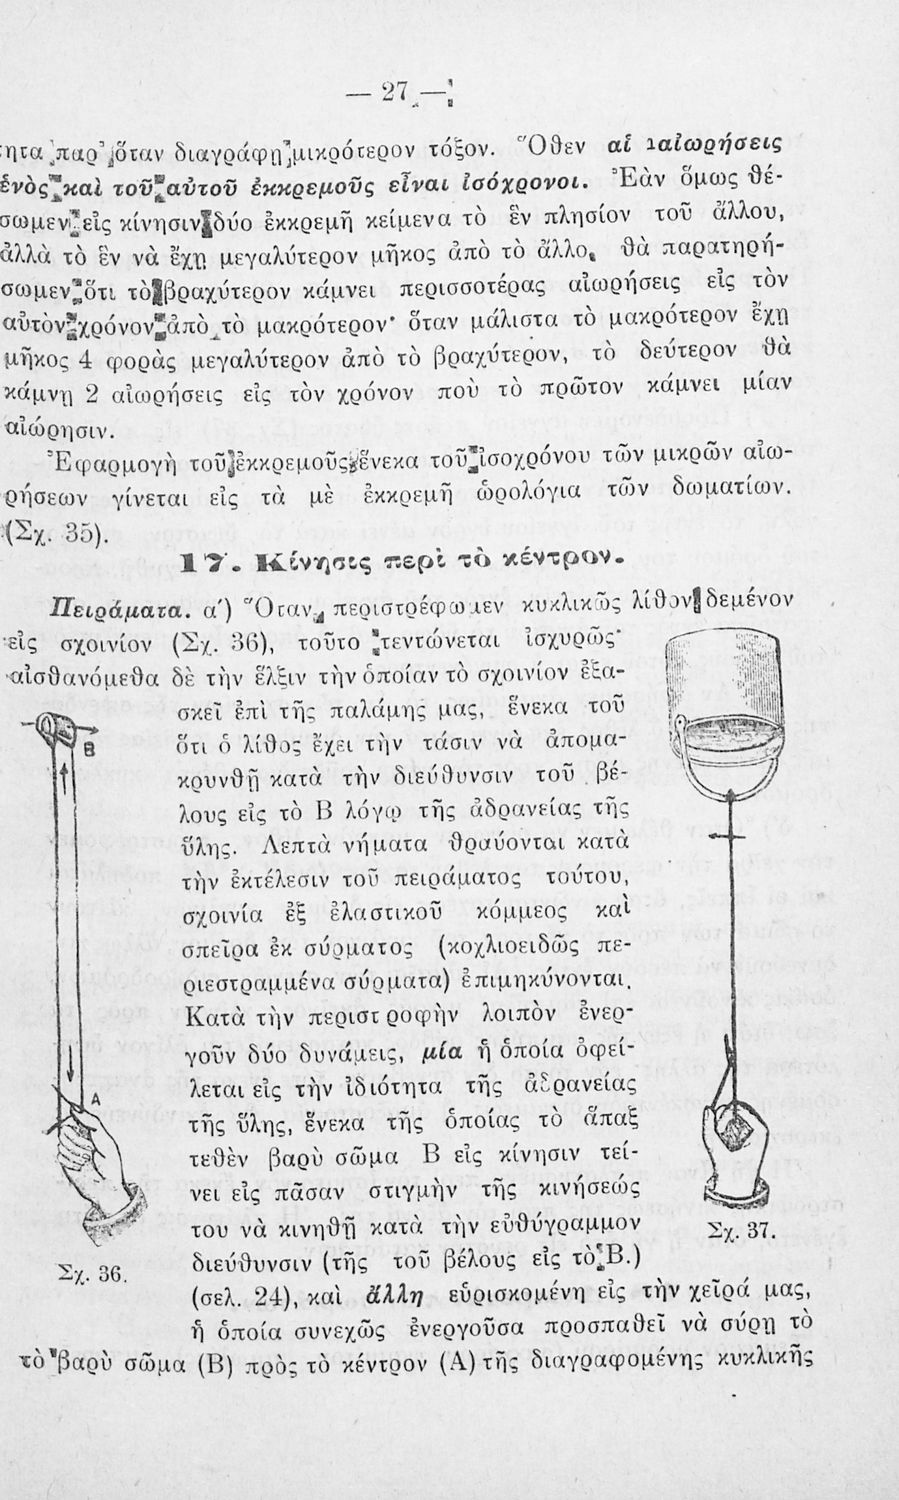 — 27 —
τητα παρ' ὅταν διαγράφῃ μικρότερον τόξον. Ὅθεν αἱ αἰωρήσεις
ἑνὸς καὶ τοῦ αὐτοῦ ἐκκρεμοῦς εἶναι ἰσόχρονοι. Ἐὰν ὅμως θέ-
σωμεν εἰς κίνησιν δύο ἐκκρεμῆ κείμενα τὸ ἓν πλησίον τοῦ ἄλλου,
ἀλλὰ τὸ ἓν νὰ ἔχῃ μεγαλύτερον μῆκος ἀπὸ τὸ ἄλλο, θὰ παρατηρή-
σωμεν ὅτι τὸ βραχύτερον κάμνει περισσοτέρας αἰωρήσεις εἰς τὸν
αὐτὸν χρόνον ἀπὸ τὸ μακρότερον· ὅταν μάλιστα τὸ μακρότερον ἔχῃ
μῆκος 4 φορὰς μεγαλύτερον ἀπὸ τὸ βραχύτερον, τὸ δεύτερον θὰ
κάμνῃ 2 αἰωρήσεις εἰς τὸν χρόνον ποὺ τὸ πρῶτον κάμνει μίαν
αἰώρησιν.
Ἐφαρμογὴ τοῦ ἐκκρεμοῦς ἕνεκα τοῦ ἰσοχρόνου τῶν μικρῶν αἰω-
ρήσεων γίνεται εἰς τὰ μὲ ἐκκρεμῆ ὡρολόγια τῶν δωματίων.
(Σχ. 35).
17. Κίνησις περὶ τὸ κέντρον.
Πειράματα. α') Ὅταν περιστρέφωμεν κυκλικῶς λίθον δεμένον
εἰς σχοινίον (Σχ. 36), τοῦτο τεντώνεται ἰσχυρῶς·
αἰσθανόμεθα δὲ τὴν ἕλξιν τὴν ὁποίαν τὸ σχοινίον ἐξα-
σκεῖ ἐπὶ τῆς παλάμης μας, ἕνεκα τοῦ
ὅτι ὁ λίθος ἔχει τὴν τάσιν νὰ ἀπομα-
κρυνθῇ κατὰ τὴν διεύθυνσιν τοῦ βέ-
λους εἰς τὸ Β λόγῳ τῆς ἀδρανείας τῆς
ὕλης. Λεπτὰ νήματα θραύονται κατὰ
τὴν ἐκτέλεσιν τοῦ πειράματος τούτου,
σχοινία ἐξ ἐλαστικοῦ κόμμεος καὶ
σπεῖρα ἐκ σύρματος (κοχλιοειδῶς πε-
ριεστραμμένα σύρματα) ἐπιμηκύνονται.
Κατὰ τὴν περιστροφὴν λοιπὸν ἐνερ-
γοῦν δύο δυνάμεις, μία ἡ ὁποία ὀφεί-
λεται εἰς τὴν ἰδιότητα τῆς ἀδρανείας
τῆς ὕλης, ἕνεκα τῆς ὁποίας τὸ ἅπαξ
τεθὲν βαρὺ σῶμα Β εἰς κίνησιν τεί-
νει εἰς πᾶσαν στιγμὴν τῆς κινήσεώς
του νὰ κινηθῇ κατὰ τὴν εὐθύγραμμον
διεύθυνσιν (τῆς τοῦ βέλους εἰς τὸ Β.)
(σελ. 24), καὶ ἄλλη εὑρισκομένη εἰς τὴν χεῖρά μας,
ἡ ὁποία συνεχῶς ἐνεργοῦσα προσπαθεῖ νὰ σύρῃ τὸ
τὸ βαρὺ σῶμα (Β) πρὸς τὸ κέντρον (Α) τῆς διαγραφομένης κυκλικῆς
B
A
Σχ. 36.
Σχ. 37.